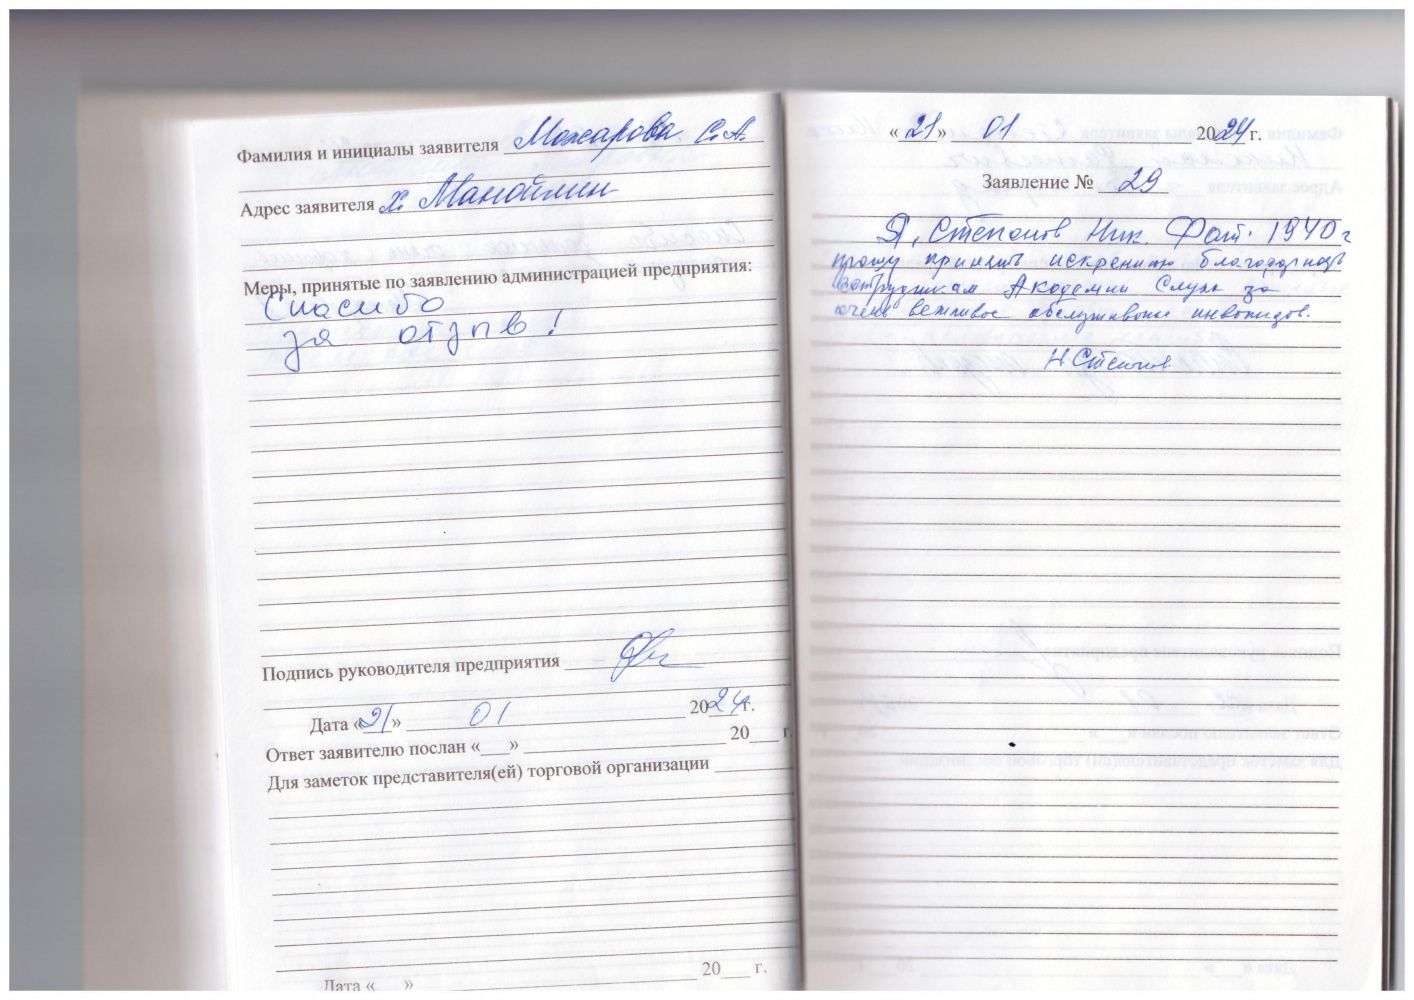 Фамилия и инициалы заявителя Можарова С.А.
Адрес заявителя х. Манойлин
Меры, принятые по заявлению администрацией предприятия:
Спасибо
за отзыв!
Подпись руководителя предприятия
Дата «21» 01 2024 г.
Ответ заявителю послан «___» ___ 20___ г.
Для заметок представителя(ей) торговой организации
Дата «___» ___ 20___ г.
«21» 01 2024 г.
Заявление № 29
Я, Степанов Ник. Фот. 1940 г
прошу принять искреннюю благодарность
сотрудникам Академии Слуха за
очень вежливое обслуживание инвалидов.
Н Степанов.